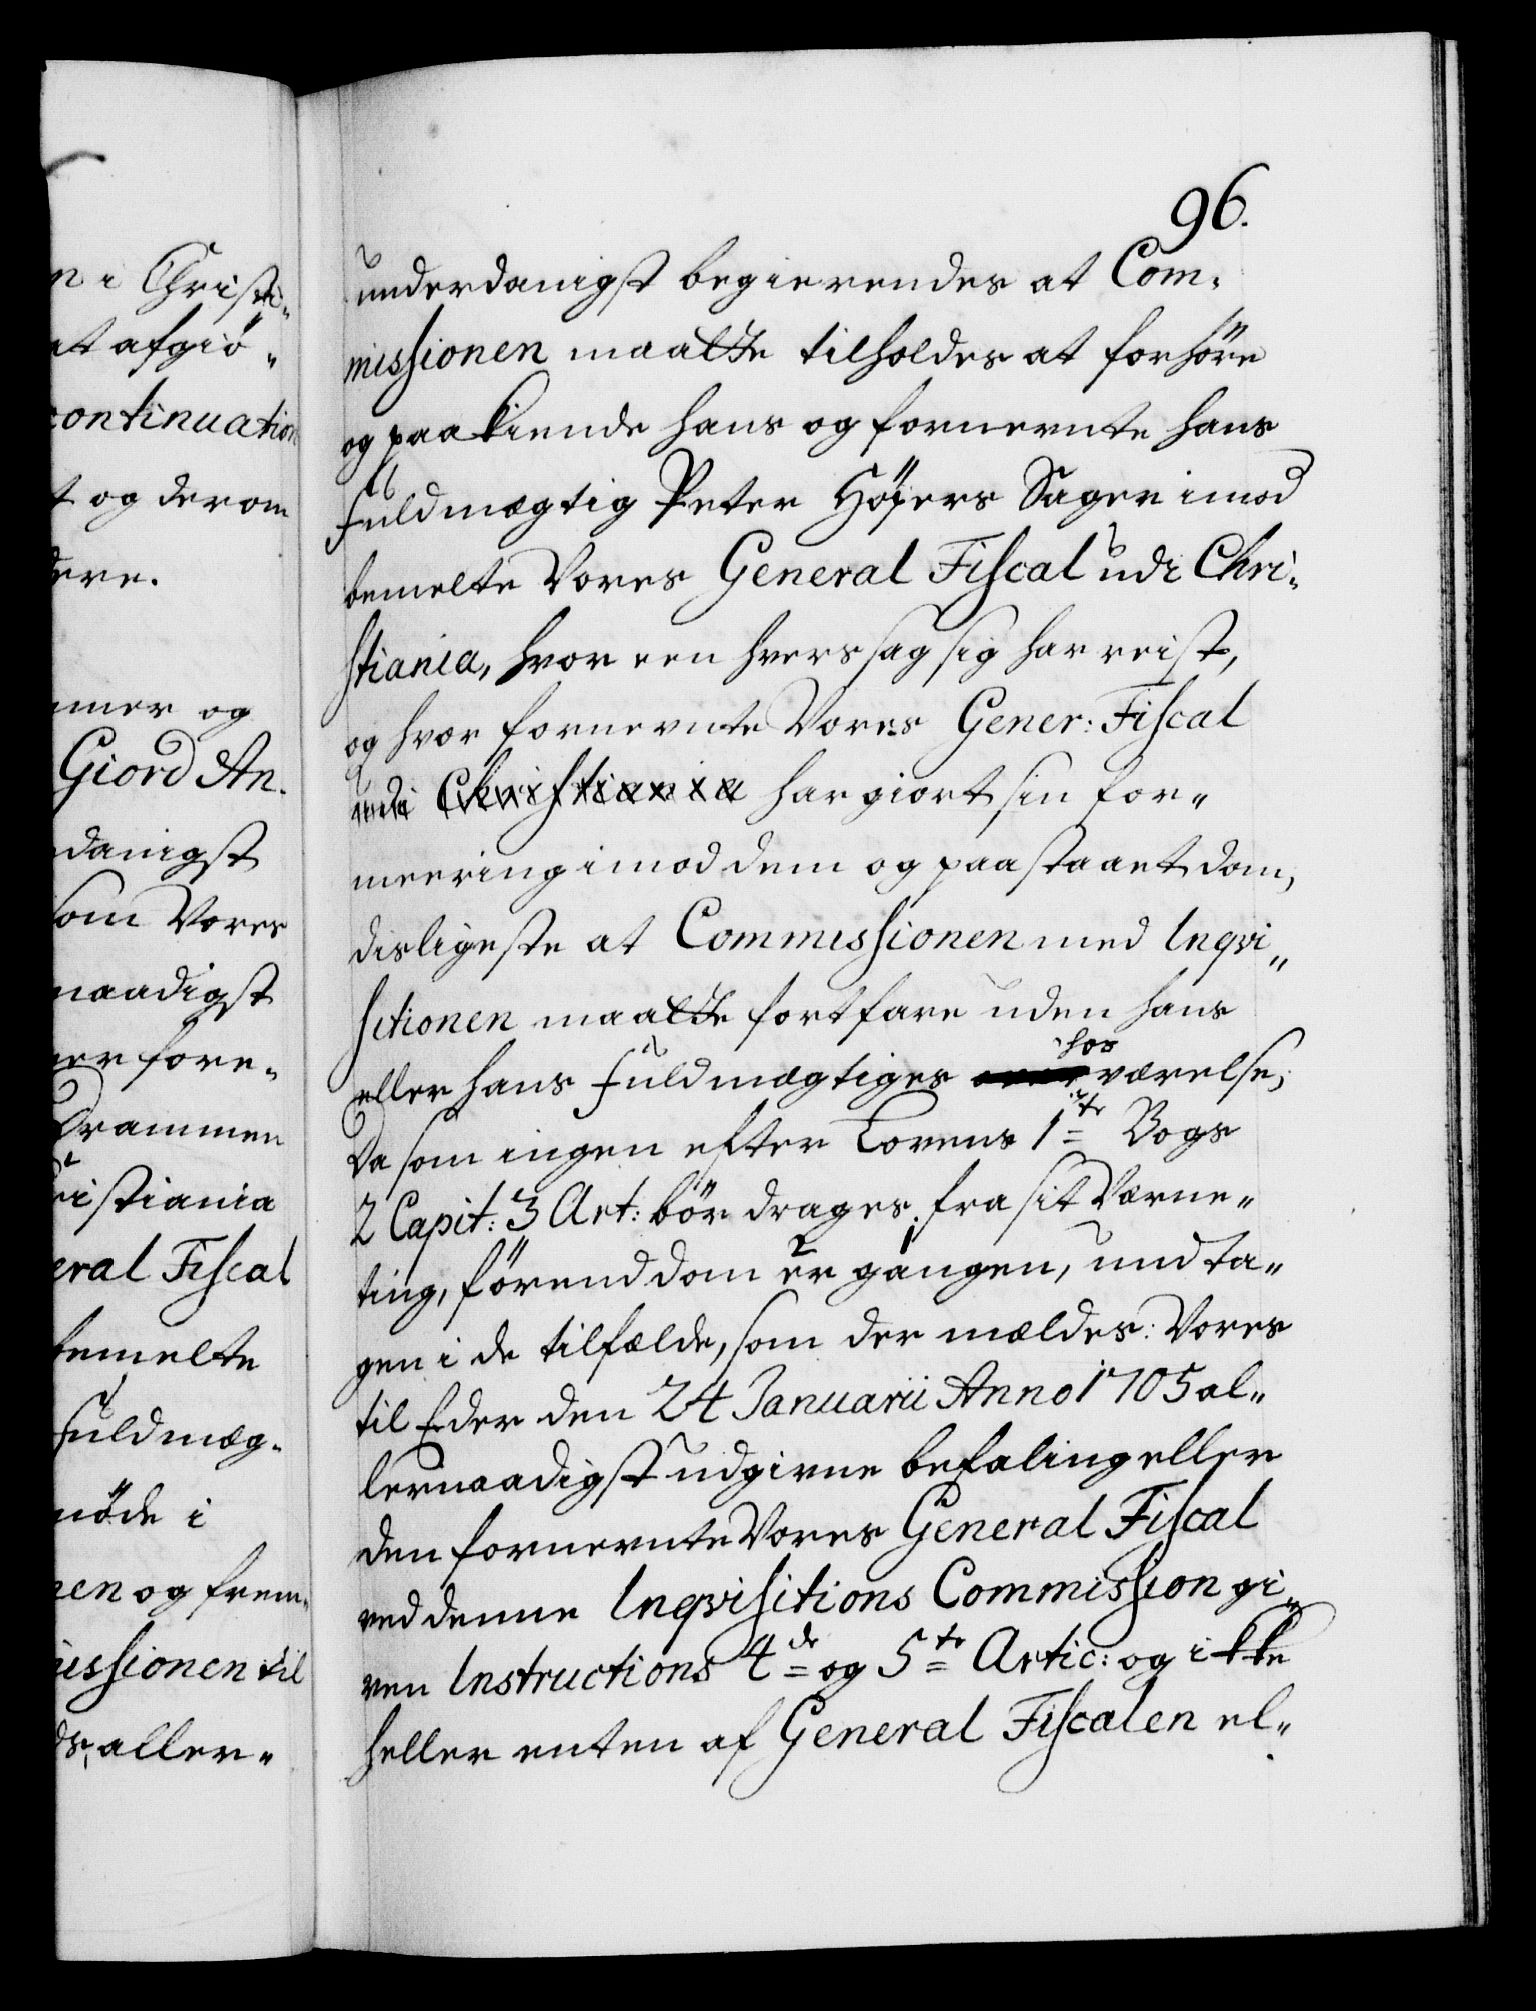 n i Christi„
at afgiö„
continuation
t og derom
dere.
mer og
Giord An.
danigst
som Vores
naadigst
er fore„
Drammen
ristiania
eral Fiscal
bemelte
Fuldmæg„
möde i
nen og frem„
issionen til
ds, aller„
96.
underdanigst begierendes at Com„
missionen maatte tilholdes at forhöre
og paakiende hans og fornevnte hans
Fuldmægtig Peter Höyers Sager imod
bemelte Vores General Fiscal udi Chri„
stiania, hvor een hvers sag sig har reist,
og hvor fornevnte Vores Gener: Fiscal
udi Christiania har giort sin for„
meering imod dem og paastaaet dom,
disligeste at Commissionen med Inqvi„
sitionen maatte fortfare uden hans
eller hans Fuldmægtiges hos værelse,
Da som ingen efter Lovens 1ste Bogs
2 Capit: 3 Art: bör drages fra sit Værne„
ting, förend dom er gangen, undta„
gen i de tilfælde, som der mældes: Vores
til Eder den 24 Januarii Anno 1705 al„
lernaadigst udgivne befaling eller
den fornevnte Vores General Fiscal
ved denne Inqvisitions Commission gi„
ven Instructions 4de og 5te Artic: og ikke
heller enten af General Fiscalen el„